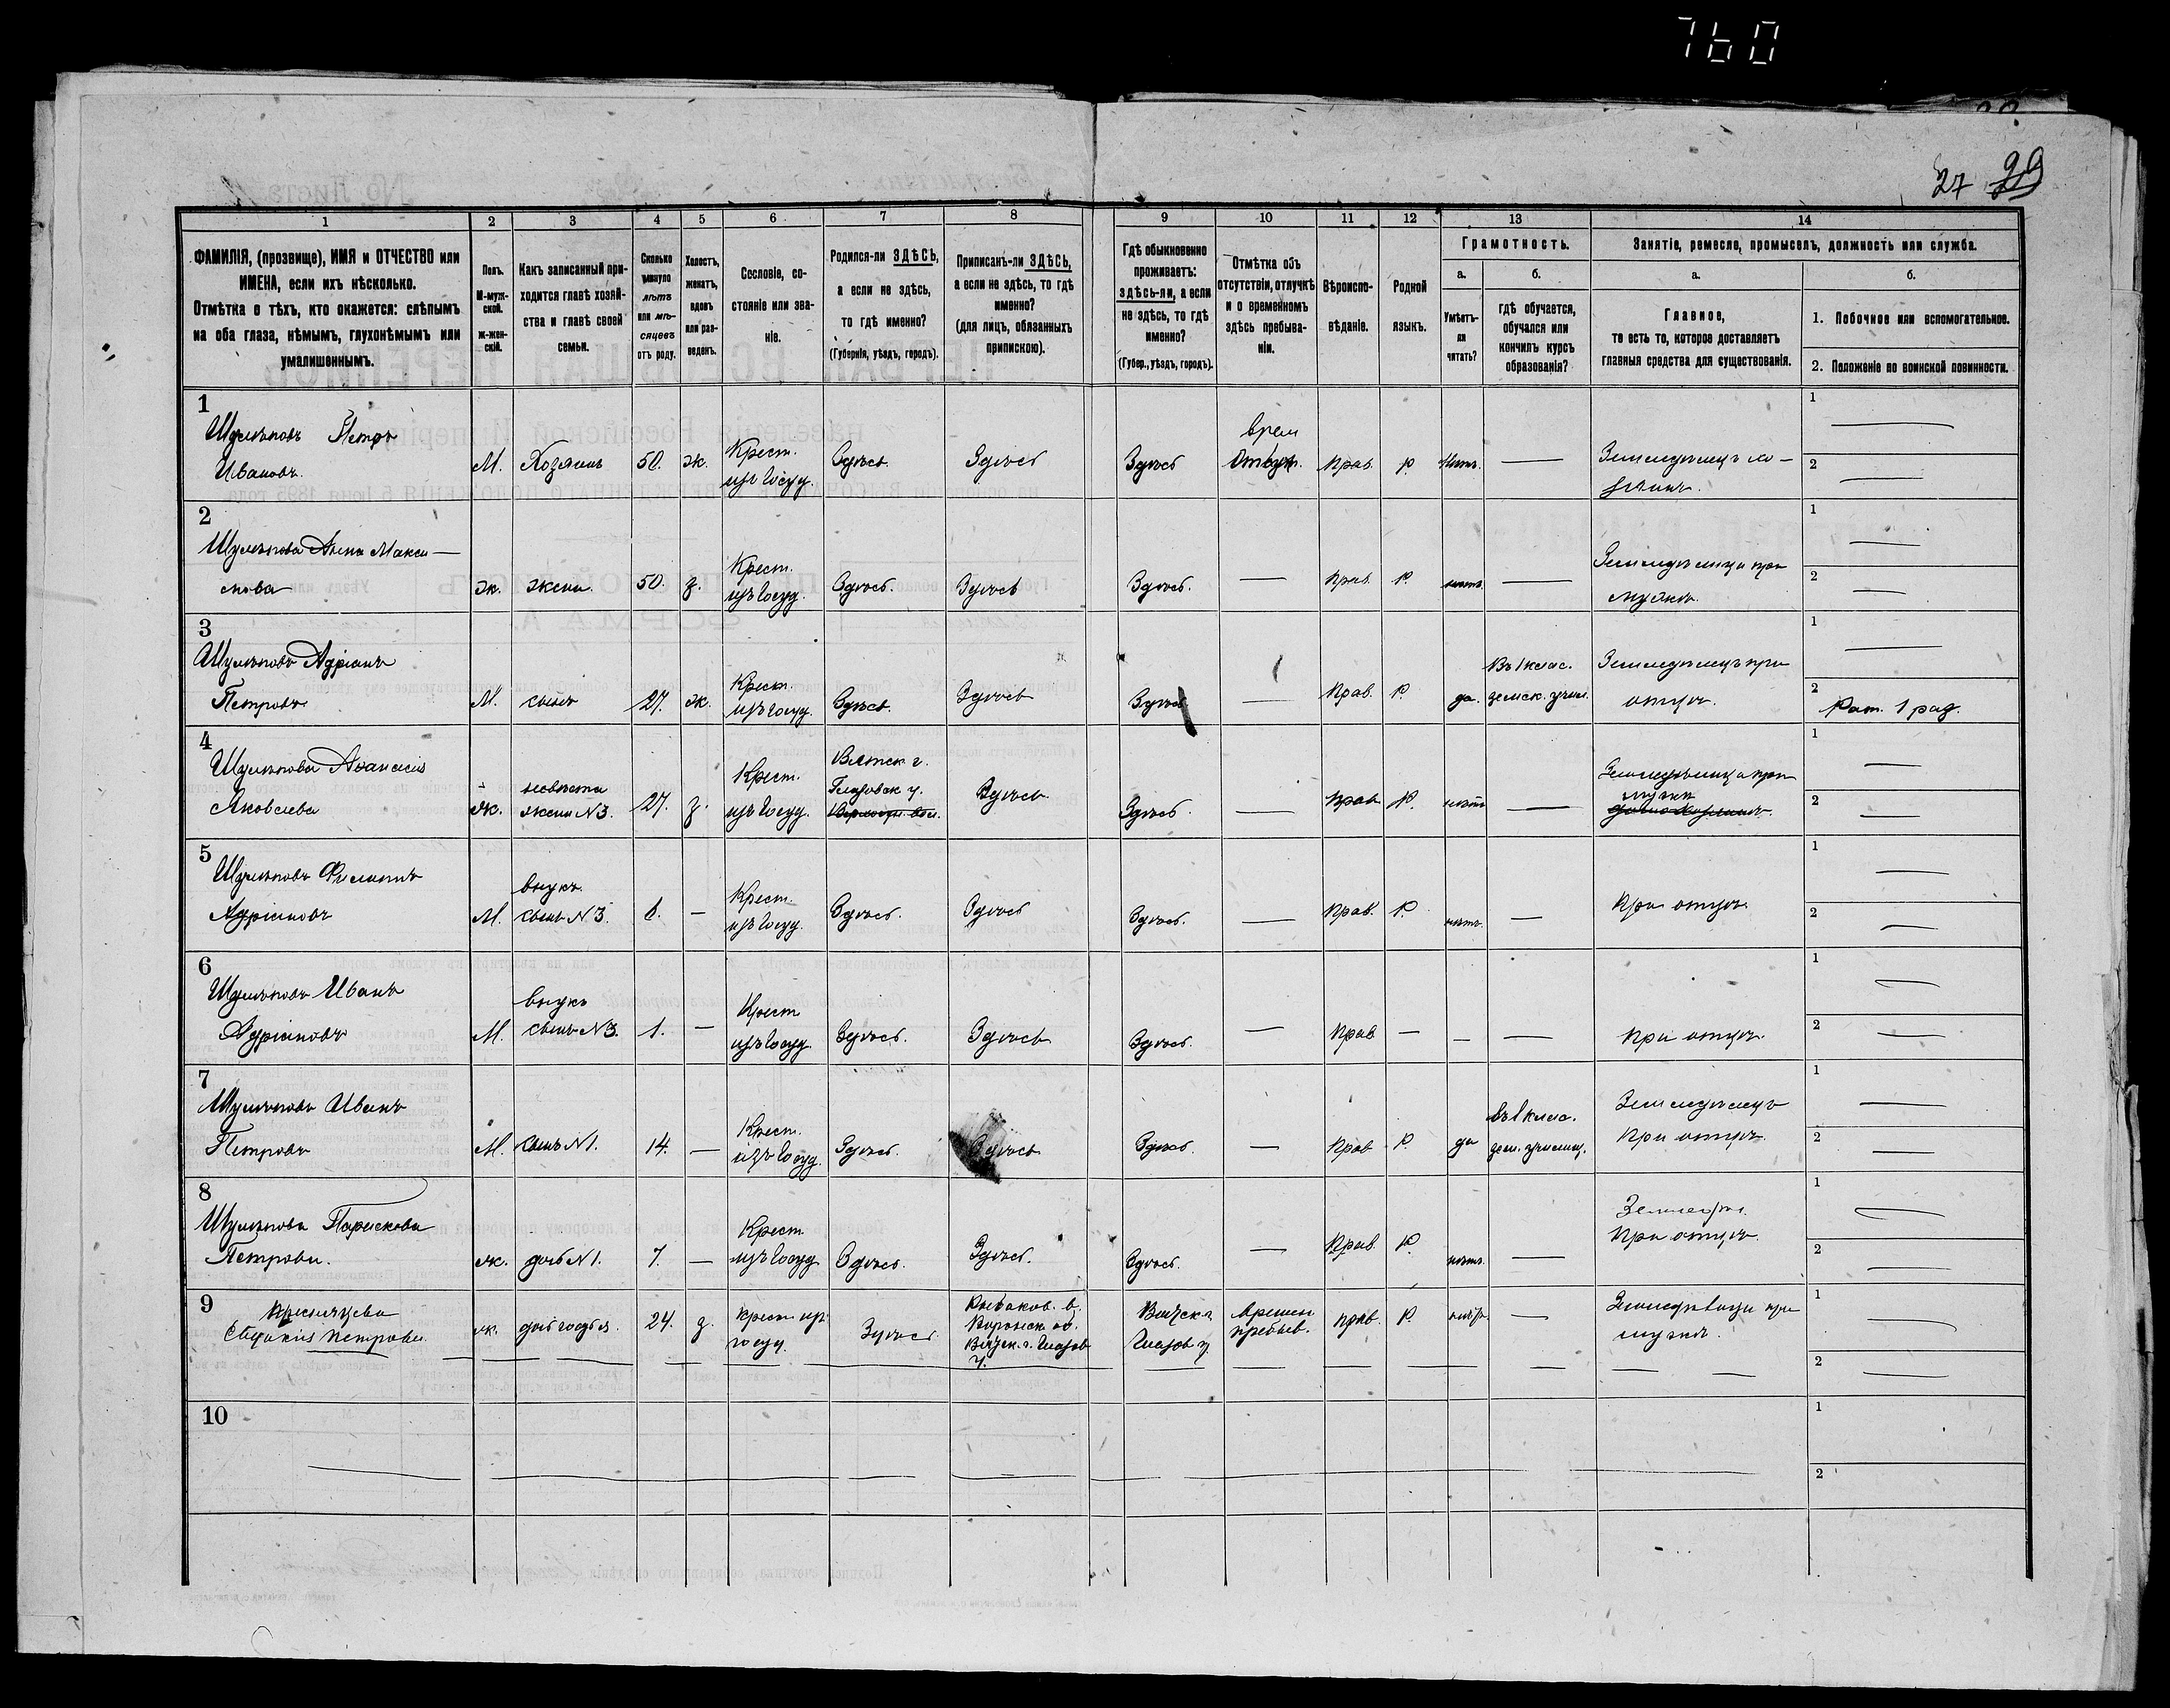 760
27 29
1 2 3 4 5 6 7 8 9 10 11 12 13 14
ФАМИЛІЯ, (прозвище), ИМЯ и ОТЧЕСТВО или
ИМЕНА, если ихъ нѣсколько.
Отмѣтка о тѣхъ, кто окажется: слѣпымъ
на оба глаза, нѣмымъ, глухонѣмымъ или
умалишеннымъ.
Полъ.
М-муж-
ской.
ж-жен-
скій.
Какъ записанный при-
ходится главѣ хозяй-
ства и главѣ своей
семьи.
Сколько
минуло
лѣтъ
или мѣ-
сяцевъ
отъ роду.
Холостъ,
женатъ,
вдовъ
или раз-
веденъ.
Сословіе, со-
стояніе или зва-
ніе.
Родился-ли ЗДѢСЬ,
а если не здѣсь,
то гдѣ именно?
(Губернія, уѣздъ, городъ).
Приписанъ-ли ЗДѢСЬ,
а если не здѣсь, то гдѣ
именно?
(для лицъ, обязанныхъ
припискою).
Гдѣ обыкновенно
проживаетъ:
здѣсь-ли, а если
не здѣсь, то гдѣ
именно?
(Губер., уѣздъ, городъ).
Отмѣтка объ
отсутствіи, отлучкѣ
и о временномъ
здѣсь пребыва-
ніи.
Вѣроиспо-
вѣданіе.
Родной
языкъ.
Грамотность.
а.
Умѣетъ-
ли
читать?
б.
гдѣ обучается,
обучался или
кончилъ курсъ
образованія?
Занятіе, ремесло, промыселъ, должность или служба.
а.
Главное,
то есть то, которое доставляетъ
главныя средства для существованія.
б.
1. Побочное или вспомогательное.
2. Положеніе по воинской повинности.
1
Петръ
Ивановъ
М. Хозяинъ 50. ж. Крест.
изъ Госуд. Здѣсь Здѣсь Здѣсь врем
отлуч. Прав. р. нѣтъ — Земледѣлецъ хо-
зяинъ.
1 —
2 —
2
Анна Макси-
мова
ж. жена. 50. з. Крест.
изъ Госуд. Здѣсь. Здѣсь Здѣсь. — Прав. Р. нѣтъ — Земледѣлица при
мужѣ.
1 —
2 —
3
Адріанъ
Петровъ
М. сынъ 27. ж. Крест.
изъ Госуд. Здѣсь. Здѣсь Здѣсь — Прав. Р. да. Въ 1 клас.
земск. учил. Земледѣлецъ при
отцѣ.
1 —
2 Рат. 1 раз.
4
Аѳанасія
Яковлева
ж. невѣстка
жена N3. 27. з. Крест.
изъ Госуд. Вятск г.
Глазовск у. Здѣсь Здѣсь. — Прав. Р. нѣтъ — Земледѣлица при
мужѣ
1 —
2 —
5
Филиппъ
Адріановъ
М. внукъ.
сынъ N3. — Крест.
изъ Госуд. Здѣсь. Здѣсь Здѣсь. — Прав. Р. нѣтъ. — При отцѣ.
1 —
2 —
6
Иванъ
Адріановъ
М. внукъ
сынъ N3. 1. — Крест
изъ Госуд. Здѣсь. Здѣсь Здѣсь. — Прав. — — — При отцѣ.
1 —
2 —
7
Иванъ
Петровъ
М. сынъ N1. 14. — Крест.
изъ Госуд. Здѣсь. Здѣсь Здѣсь. — Прав Р. да въ 1 клас.
зем. училищ. Земледѣлецъ
При отцѣ.
1 —
2 —
8
Параскова
Петрова.
ж. дочь N1. 7. — Крест
изъ Госуд. Здѣсь. Здѣсь. Здѣсь. — Прав. Р. нѣтъ. —
При отцѣ.
1 —
2 —
9
Петрова.
ж. 24. з. Крест. изъ
госуд. Здѣсь
Вятск. г. Глазов
у. Вятск. г.
Глазов у. времен.
пребыв. прав. Р. — Земледѣлица при
мужѣ.
1 —
2 —
10
1
2